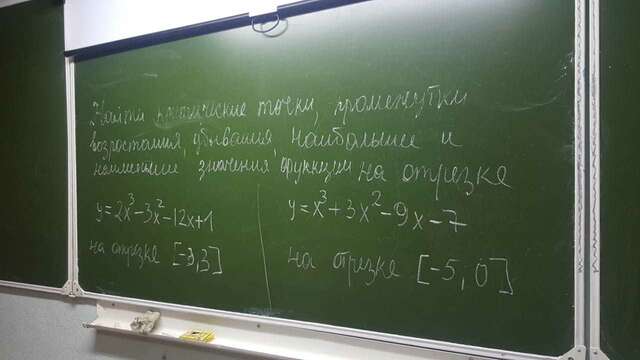 Найти критические точки, промежутки
возростания, убывания, наибольшее и
наименьшее значения функции на отрезке
y=2x³-3x²-12x+1
на отрезке [-3,3]
y=x³+3x²-9x-7
на отрезке [-5;0]